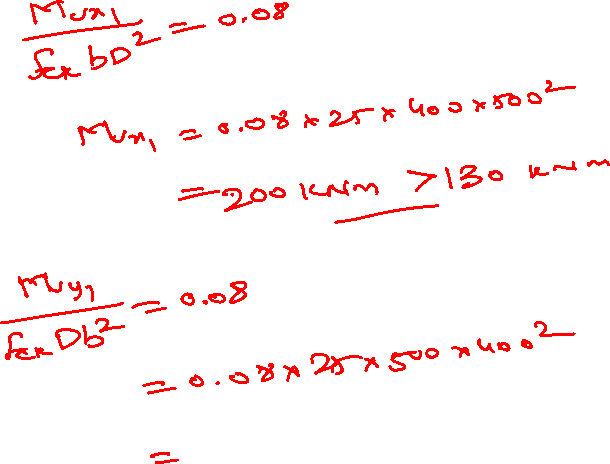 Mux1 / fck bD² = 0.08
Mux1 = 0.08 × 25 × 400 × 500²
= 200 KNm > 130 KNm
Muy1 / fck Db² = 0.08
= 0.08 × 25 × 500 × 400²
=